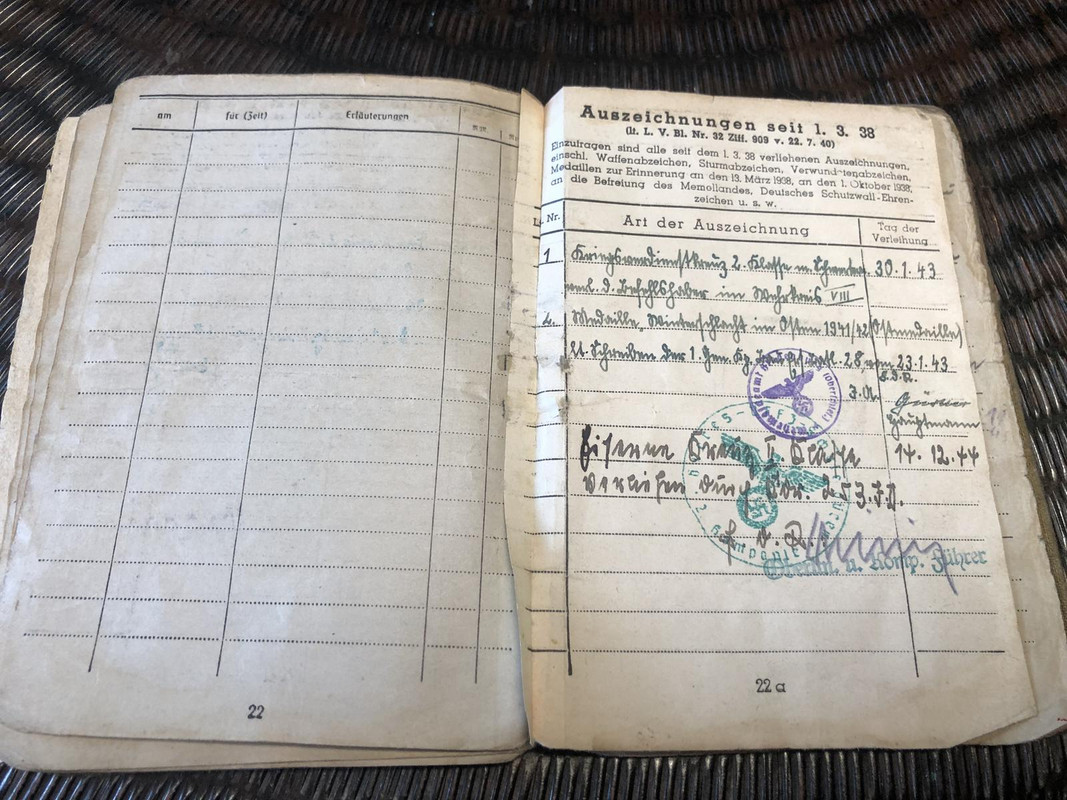 am für (Zeit) Erläuterungen
22
Auszeichnungen seit 1. 3. 38
(lt. L. V. Bl. Nr. 32 Ziff. 909 v. 22. 7. 40)
Einzutragen sind alle seit dem 1. 3. 38 verliehenen Auszeichnungen,
einschl. Waffenabzeichen, Sturmabzeichen, Verwundetenabzeichen,
Medaillen zur Erinnerung an den 13. März 1938, an den 1. Oktober 1938,
an die Befreiung des Memellandes, Deutsches Schutzwall-Ehren-
zeichen u. s. w.
Nr. Art der Auszeichnung Tag der
Verleihung
1 Kriegsverdienstkreuz 2. Klasse m. Schwertern 30. 1. 43
verl. d. Befehlshaber im Wehrkreis VIII
2. Medaille, Winterschlacht im Osten 1941/42 (Ostmedaille)
lt. Schreiben der 1. Gen. Kp. 28 vom 23. 1. 43
Hauptmann
Eiserne Kreuz II. Klasse 14. 12. 44
Verliehen durch
u. Komp. Führer
22 a